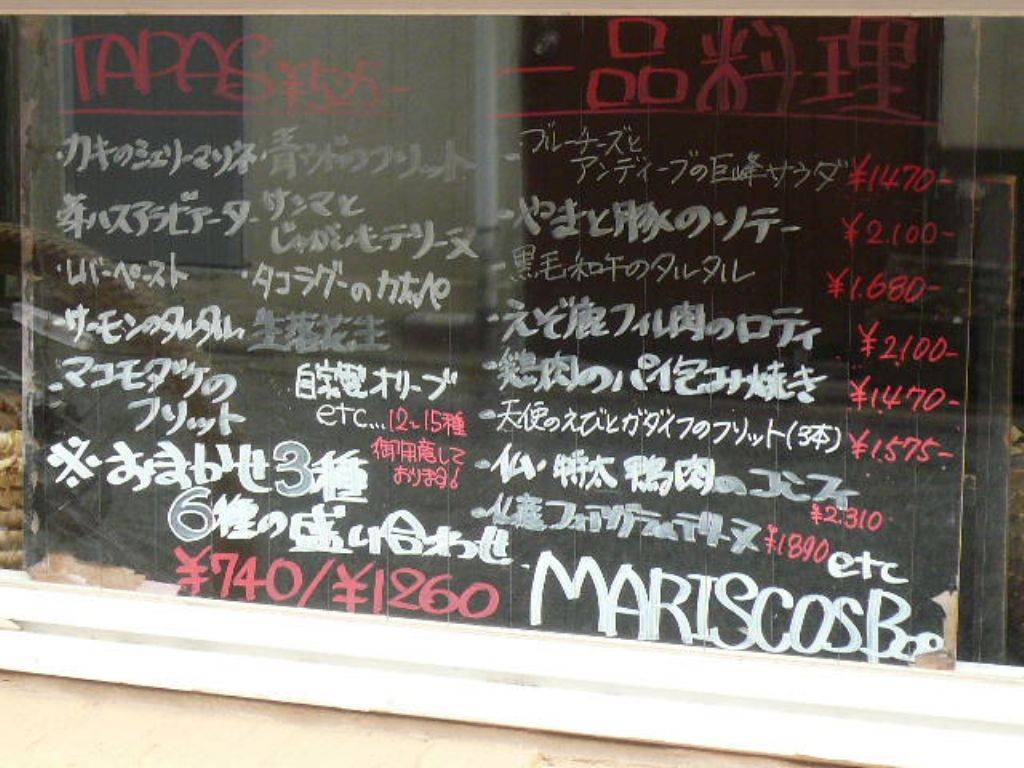 TAPAS ¥525-
・カキのシェリーマリネ
・青ウドのフリット
・ハスアラビアータ
・サンマと
じゃがいもテリーヌ
・レバーペースト
・タコラグーの
・サーモンのタルタル
生落花生
・マコモダケの
フリット
自家製オリーブ
etc...12〜15種
御用意して
おります!
※おまかせ3種
6種の盛り合わせ
¥740/¥1260
一品料理
-ブルーチーズと
アンディーブの巨峰サラダ ¥1470-
-やまと豚のソテー ¥2.100-
-黒毛和牛のタルタル ¥1.680-
-えぞ鹿フィレ肉のロティ ¥2100-
-鶏肉のパイ包み焼き ¥1470-
-天使のえびとカダイフのフリット(3本) ¥1.575-
-仏・特太 鴨肉のコンフィ
¥2.310
-仏産フォアグラのテリーヌ ¥1890 etc
MARISCOS Bar